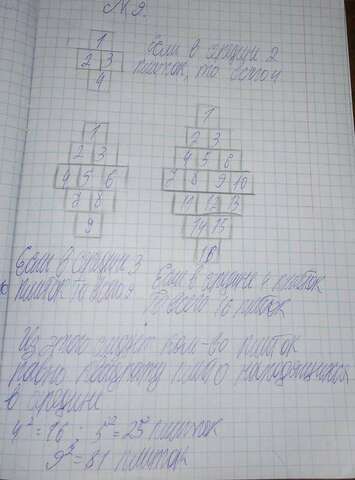 № 9.
1
2 3
4
Если в средине 2
плиток, то всего 4
1
2 3
4 5 6
7 8
9
1
2 3
4 5 6
7 8 9 10
11 12 13
14 15
16
Если в средине 3
плиток то всего 9
Если в средине 4 плиток
то всего 16 плиток
Из этого следует кол-во плиток
равно квадрату находящихся
в средине
4² = 16 ; 5² = 25 плиток
9² = 81 плиток